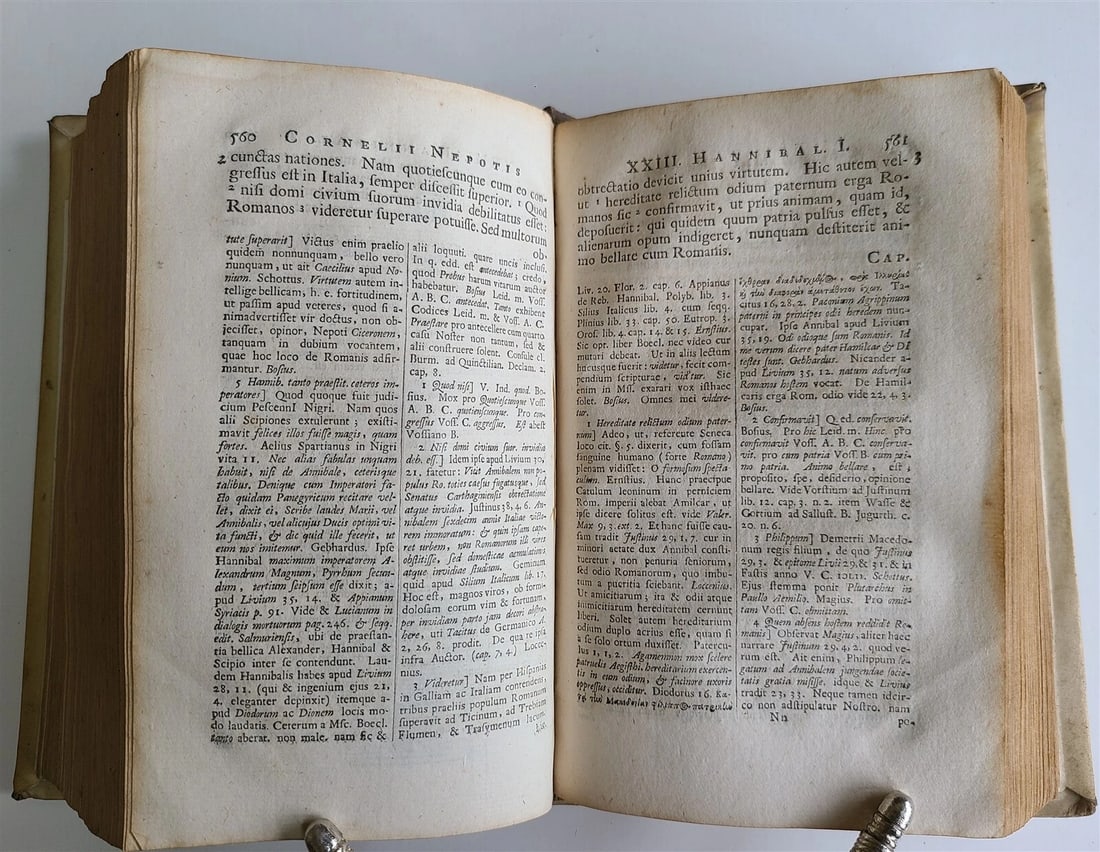 560 CORNELII NEPOTIS
2 cunctas nationes. Nam quotiescunque cum eo con-
gressus est in Italia, semper discessit superior. 1 Quod
2 nisi domi civium suorum invidia debilitatus esset:
Romanos 3 videretur superare potuisse. Sed multorum
ob-
tute superarit] Victus enim praelio
quidem nonnunquam, bello vero
nunquam, ut ait Caecilius apud No-
nium. Schottus. Virtutem autem in-
tellige bellicam, h. e. fortitudinem,
ut passim apud veteres, quod si a-
nimadvertisset vir doctus, non ob-
jecisset, opinor, Nepoti Ciceronem,
tanquam in dubium vocantem,
quae hoc loco de Romanis adfir-
mantur. Bosius.
5 Hannib. tanto praestit. ceteros im-
peratores] Quod quoque suit judi-
cium Pescennî Nigri. Nam quos
alii Scipiones extulerunt; existi-
mavit felices illos fuisse magis, quam
fortes. Aelius Spartianus in Nigri
vita 11. Nec alias fabulas unquam
habuit, nisi de Annibale, ceterisque
talibus. Denique cum Imperatori fa-
cto quidam Panegyricum recitare vel-
let, dixit ei, Scribe laudes Marii, vel
Annibalis, vel alicujus Ducis optimi vi-
ta functi, & dic quid ille fecerit, ut
eum nos imitemur. Gebhardus. Ipse
Hannibal maximum imperatorem A-
lexandrum Magnum, Pyrrhum secun-
dum, tertium seipsum esse dixit; a-
pud Livium 35, 14. & Appianum
Syriacis p. 91. Vide & Lucianum in
dialogis mortuorum pag. 246. & seqq.
edit. Salmuriensis, ubi de praestan-
tia bellica Alexander, Hannibal &
Scipio inter se contendunt. Lau-
dem Hannibalis habes apud Livium
28, 11. (qui & ingenium ejus 21,
4. eleganter depinxit) itemque a-
pud Diodorum ac Dionem locis mo-
do laudatis. Ceterum a Msc. Boecl.
tanto aberat. non male. nam sic &
alii loquuti, quare uncis inclusi.
In q. edd. est antecedebat; credo,
quod Probus harum vitarum auctor
habebatur. Bosius Leid. m. Voss.
A. B. C. antecedat. Tanto exhibent
Codices Leid. m. & Voss. A. C.
Praestare pro antecellere cum quarto
casu Noster non tantum, sed &
alii construere solent. Consule cl.
Burm. ad Quinctilian. Declam. 2.
cap. 8.
1 Quod nisi] V. Ind. quod. Bo-
sius. Mox pro Quotiescunque Voss.
A. B. C. quotienscunque. Pro con-
gressus Voss. C. aggressus. Est abest
Vossiano B.
2 Nisi domi civium suor. invidia
deb. ess.] Idem ipse apud Livium 30,
21. fatetur: Vicit Annibalem non po-
pulus Ro. toties caesus fugatusque, sed
Senatus Carthaginensis obtrectatione
atque invidia. Justinus 38, 4. 6. An-
nibalem sexdecim annis Italiae victo-
rem immoratum: & quin ipsam cape-
ret urbem, non Romanorum illi vires
obstitisse, sed domesticae aemulationis
atque invidiae studium. Geminum
quid apud Silium Italicum lib. 17.
Hoc est, magnos viros, ob formi-
dolosam eorum vim & fortunam,
per invidiam parto jam decori abstra-
here, uti Tacitus de Germanico A.
2, 26, 8. prodit. De qua re ipsa
infra Auctor. (cap. 7, 4.) Locce-
nius.
3 Videretur] Nam per Hispanias
in Galliam ac Italiam contendens,
tribus praeliis populum Romanum
superavit ad Ticinum, ad Trebiam
Flumen, & Trasymenum lacum.
XXIII. HANNIBAL. I. 561
obtrectatio devicit unius virtutem. Hic autem vel- 3
ut 1 hereditate relictum odium paternum erga Ro-
manos sic 2 confirmavit, ut prius animam, quam id,
deposuerit: qui quidem quum patria pulsus esset, &
alienarum opum indigeret, nunquam destiterit ani-
mo bellare cum Romanis.
CAP.
Liv. 20. Flor. 2. cap. 6. Appianus
de Reb. Hannibal. Polyb. lib. 3.
Silius Italicus lib. 4. cum seqq.
Plinius lib. 33. cap. 50. Eutrop. 3.
Oros. lib. 4. cap. 14. & 15. Ernstius.
Sic opt. liber Boecl. nec video cur
mutari debeat. Ut in aliis lectum
hucusque fuerit: videtur, fecit com-
pendium scripturae, vid'tur. Sic
enim in Mss. exarari vox isthaec
solet. Bosius. Omnes mei videre-
tur.
1 Hereditate relictum odium pater-
num] Adeo, ut, referente Seneca
loco cit. §. 5. dixerit, cum fossam
sanguine humano (forte Romano)
plenam vidisset: O formosum specta-
culum. Ernstius. Hunc praecipue
Catulum leoninum in perniciem
Rom. imperii alebat Amilcar, ut
ipse dicere solitus est. vide Valer.
Max 9, 3. ext. 2. Et hanc fuisse cau-
sam tradit Justinus 29, 1, 7. cur in
minori aetate dux Annibal consti-
tueretur, non penuria seniorum,
sed odio Romanorum, quo imbu-
tum a pueritia sciebant. Loccenius.
Ut amicitiarum; ita & odii atque
inimicitiarum hereditatem cernunt
liberi. Solet autem hereditarium
odium duplo acrius esse, quam si
a se solo ortum duxisset. Patercu-
lus 1, 1, 2. Agamemnon mox scelere
patruelis Aegisthi. hereditarium exercen-
tis in eum odium, & facinore uxoris
oppressus, occiditur. Diodorus 16. Κα-
citus 16, 28. 2. Paconium Agrippinum
paterni in principes odii heredem nun-
cupat. Ipse Annibal apud Livium
35, 19. Odi odioque sum Romanis. Id
me verum dicere pater Hamilcar & DI
testes sunt. Gebhardus. Nicander a-
pud Livium 35, 12. natum adversus
Romanos hostem vocat. De Hamil-
caris erga Rom. odio vide 22, 4, 3.
Bosius.
2 Confirmavit] Q. ed. conservavit.
Bosius. Pro hic Leid. m. Hinc. pro
confirmavit Voss. A. B. C. conserva-
vit. pro cum patria Voss. B. cum pri-
mo patria. Animo bellare, est,
proposito, spe, desiderio, opinione
bellare. Vide Vorstium ad Justinum
lib. 12. cap. 3. n. 2. item Wasse &
Cortium ad Sallust. B. Jugurth. c.
20. n. 6.
3 Philippum] Demetrii Macedo-
num regis filium, de quo Justinus
29, 3. & epitome Livii 29. & 31. & in
Fastis anno V. C. Schottus.
Ejus stemma ponit Plutarchus in
Paullo Aemilio. Magius. Pro omit-
tam Voss. C. obmittam.
4 Quem absens hostem reddidit Ro-
manis] Observat Magius, aliter haec
narrare Justinum 29. 4. 2. quod ve-
rum est. Ait enim, Philippum le-
gatum ad Annibalem jungendae socie-
tatis gratia misisse. idque & Livius
tradit 23, 33. Neque tamen idcir-
co non adstipulatur Nostro, nam
Nn
po-